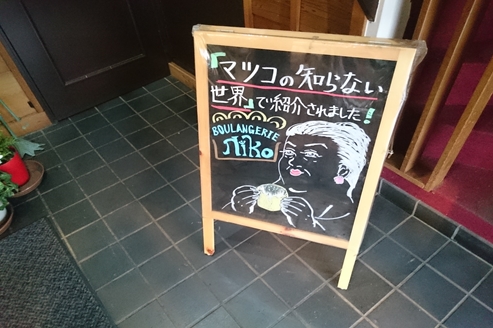 『マツコの知らない
世界』で紹介されました！
BOULANGERIE
Niko